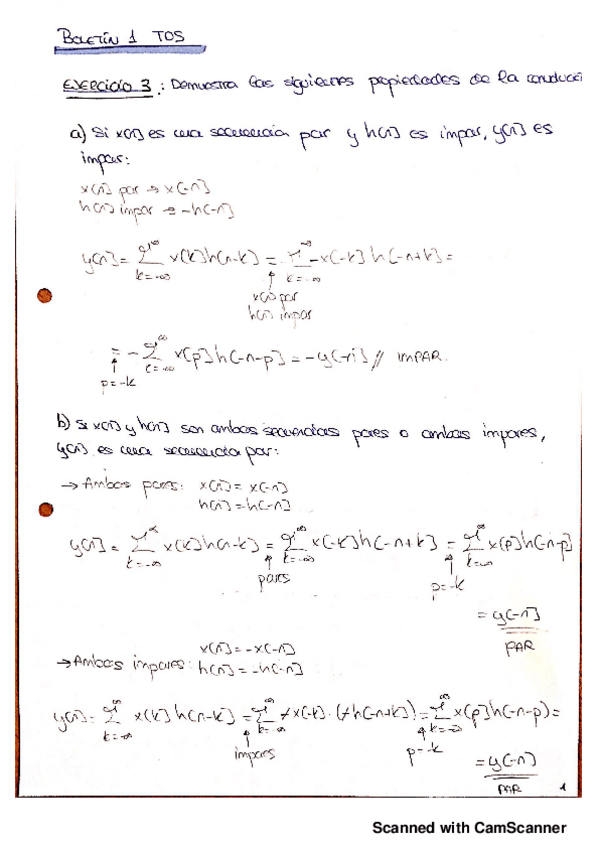 BOLETÍN 1 TDS
EJERCICIO 3: Demuestra las siguientes propiedades de la
a) Si x[n] es una secuencia par y h[n] es impar, y[n] es
impar:
x[n] par → x[-n]
h[n] impar → -h[-n]
y[n] = ∑ x[k]h[n-k] = ∑ -x[-k] h[-n+k] =
k=-∞
x[n] par
h[n] impar
= -∑ x[p]h[-n-p] = -y[-n] // IMPAR.
p=-k
b) Si x[n] y h[n] son ambas secuencias pares o ambas impares,
y[n] es una secuencia par:
→ Ambas pares: x[n] = x[-n]
h[n] = h[-n]
y[n] = ∑ x[k]h[n-k] = ∑ x[-k]h[-n+k] = ∑ x[p]h[-n-p]
k=-∞
pares
p=-k
= y[-n]
PAR
x[n] = -x[-n]
→ Ambas impares: h[n] = -h[-n]
y[n] = ∑ x[k]h[n-k] = ∑ x[-k]·(h[-n+k]) = ∑ x[p]h[-n-p] =
k=-∞
impares
p=-k
= y[-n]
PAR
1
Scanned with CamScanner